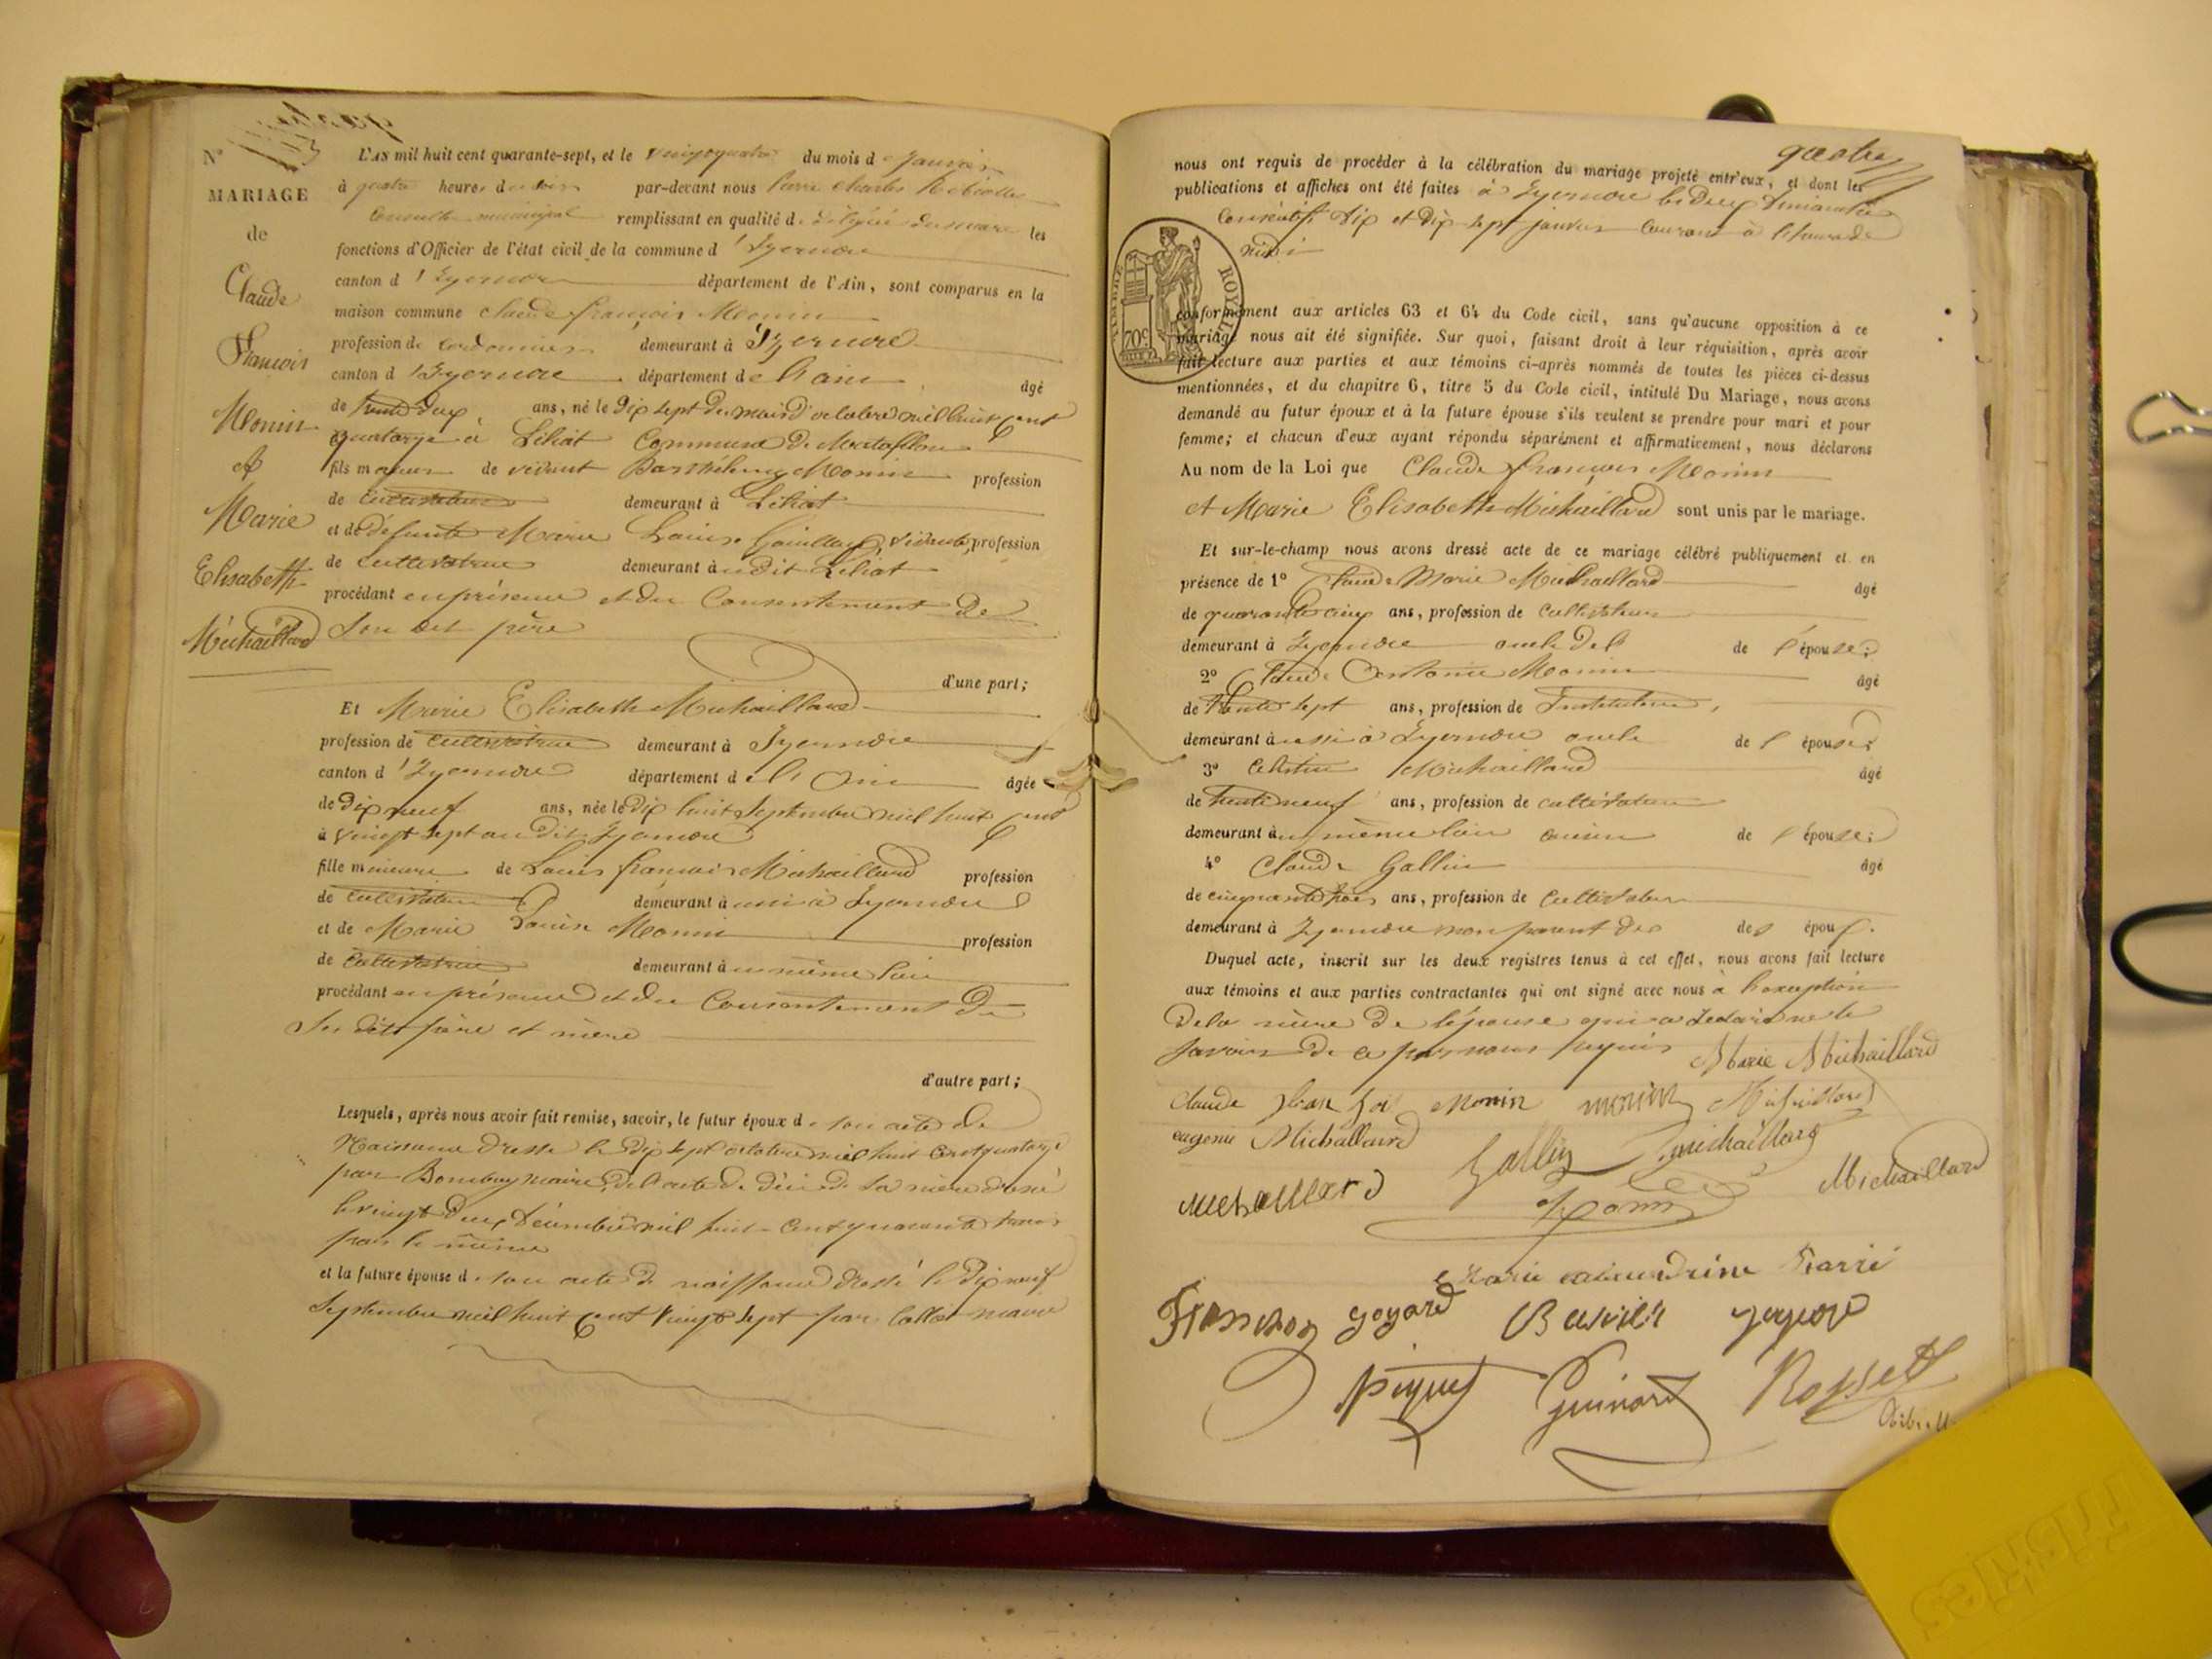 N°
MARIAGE
de
Claude
François
Monin
et
Marie
Elisabeth
Michaillard
L'AN mil huit cent quarante-sept, et le vingt quatre du mois de janvier
à quatre heures du soir par-devant nous Pierre Charles
Conseiller municipal remplissant en qualité de délégué du maire les
fonctions d'Officier de l'état civil de la commune d'Izernore
canton d'Izernore département de l'Ain, sont comparus en la
maison commune Claude françois Monin
profession de cordonnier demeurant à Izernore
canton d'Izernore département de l'ain âgé
de trente deux ans, né le dix sept du mois d'octobre mil huit cent
quatorze à Léliat Commune de Matafelon
fils majeur de vivant Barthélemy Monin profession
de cultivateur demeurant à Léliat
et de défunte Marie Louise vivante, profession
de cultivatrice demeurant audit Léliat
procédant en présence et du Consentement de
Son dit père
d'une part;
Et Marie Elisabeth Michaillard
profession de cultivatrice demeurant à Izernore
canton d'Izernore département de l'Ain âgée
de dix neuf ans, née le dix huit septembre mil huit cent
à vingt sept au dit Izernore
fille mineure de Louis françois Michaillard profession
de cultivateur demeurant aussi à Izernore
et de Marie Louise Monin profession
de cultivatrice demeurant au même lieu
procédant en présence et du Consentement de
Ses dits père et mère
d'autre part;
Lesquels, après nous avoir fait remise, savoir, le futur époux de son acte de
Naissance dressé le dix sept octobre mil huit cent quatorze
par maire, de l'acte de décès de sa mère dressé
le vingt deux décembre mil huit-cent quarante trois
par le même
et la future épouse de son acte de naissance dressé le dix neuf
Septembre mil huit cent vingt sept par maire
quatre
nous ont requis de procéder à la célébration du mariage projeté entr'eux, et dont les
publications et affiches ont été faites à Izernore les deux dimanches
consécutifs dix et dix sept janvier courant à l'heure de
midi
TIMBRE ROYAL
70c
conformément aux articles 63 et 64 du Code civil, sans qu'aucune opposition à ce
mariage nous ait été signifiée. Sur quoi, faisant droit à leur réquisition, après avoir
fait lecture aux parties et aux témoins ci-après nommés de toutes les pièces ci-dessus
mentionnées, et du chapitre 6, titre 5 du Code civil, intitulé Du Mariage, nous avons
demandé au futur époux et à la future épouse s'ils veulent se prendre pour mari et pour
femme; et chacun d'eux ayant répondu séparément et affirmativement, nous déclarons
Au nom de la Loi que Claude françois Monin
et Marie Elisabeth Michaillard sont unis par le mariage.
Et sur-le-champ nous avons dressé acte de ce mariage célébré publiquement et en
présence de 1° Claude Marie Michaillard âgé
de quarante cinq ans, profession de Cultivateur
demeurant à Izernore oncle de l'épouse;
2° Claude Antoine Monin âgé
de trente sept ans, profession de Instituteur,
demeurant aussi à Izernore oncle de l'épouse;
3° Célestin Michaillard âgé
de trente neuf ans, profession de cultivateur
demeurant au même lieu cousin de l'épouse;
4° Claude Gallin âgé
de cinquante trois ans, profession de Cultivateur
demeurant à Izernore non parent des époux.
Duquel acte, inscrit sur les deux registres tenus à cet effet, nous avons fait lecture
aux témoins et aux parties contractantes qui ont signé avec nous à l'exception
de la mère de l'épouse qui a déclaré ne le
savoir de ce par nous requis Marie Michaillard
Claude fran çois Monin monin Michaillard
eugenie Michallard Gallin michaillard
Michaillard Monin Michaillard
Marie alexandrine
goyard
piquet Guinard Rosset
Fiskies